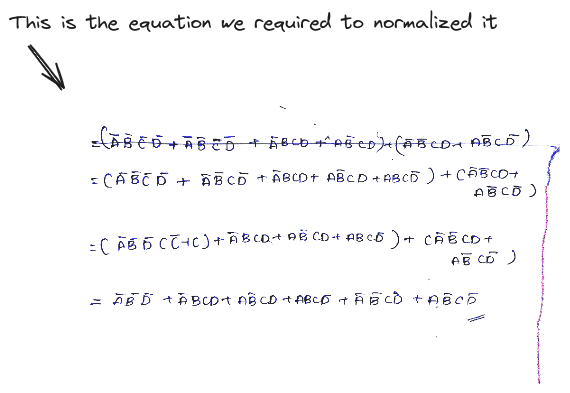 This is the equation we required to normalized it
=(A̅B̅C̅D̅ + A̅B̅C̅D̅ + A̅BCD + AB̅CD)+(A̅B̅CD+ AB̅CD̅)
=(A̅B̅C̅D̅ + A̅B̅CD̅ + A̅BCD+ AB̅CD +ABCD̅) + (A̅B̅CD+
AB̅CD̅)
=(A̅B̅D̅(C̅+C)+A̅BCD+AB̅CD+ABCD̅)+ (A̅B̅CD+
AB̅CD̅)
= A̅B̅D̅ +A̅BCD+AB̅CD+ABCD̅ +A̅B̅CD +AB̅CD̅